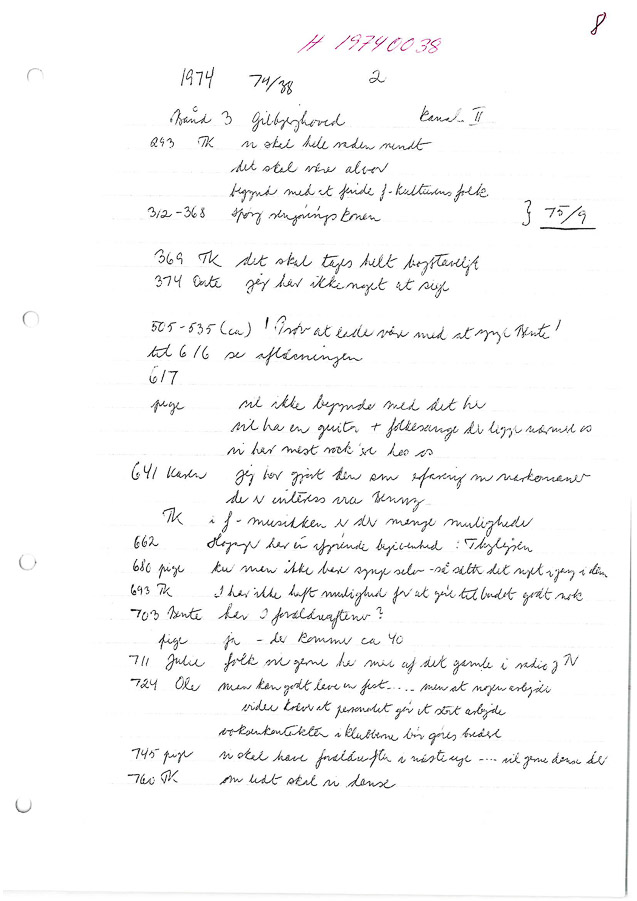 8
H 19740038
1974 74/38 2
Bånd 3 Gilbjerghoved Kanal II
293 TK vi skal hele raden rundt
det skal være alvor
begynd med at finde f-kulturens folk
312-368 spørg rengøringskonen } 75/9
369 TK det skal tages helt bogstaveligt
374 Dorte jeg har ikke noget at sige
505-535 (ca) ! Prøv at lade være med at synge Bente!
til 616 se aflåsningen
617
pige vil ikke begynde med det he
vil ha en guitar + folkesange der ligge nærmed os
vi har mest rock'en hos os
641 Karen jeg har gjort den som erfaring m narkomaner
de er interess
TK i f-musikken er der mange mulighede
662 har en begivenhed :
680 pige ku man ikke bare synge selv - så sætte det noget igang i dem
693 TK I har ikke haft mulighed for at gøre tilbudet godt nok
703 Bente har I forældreaftener?
pige ja - der kommer ca 40
711 Julie folk vil gerne ha mer af det gamle i radio og TV
724 Ole man kan godt lave en fest ..... men at nogen arbejde
videre kræver at personalet gør et stort arbejde
voksenkontakten i klubberne bør gøres bedre
745 pige vi skal have forældreaften i næste uge .... vil gerne danse der
760 TK om lidt skal vi danse